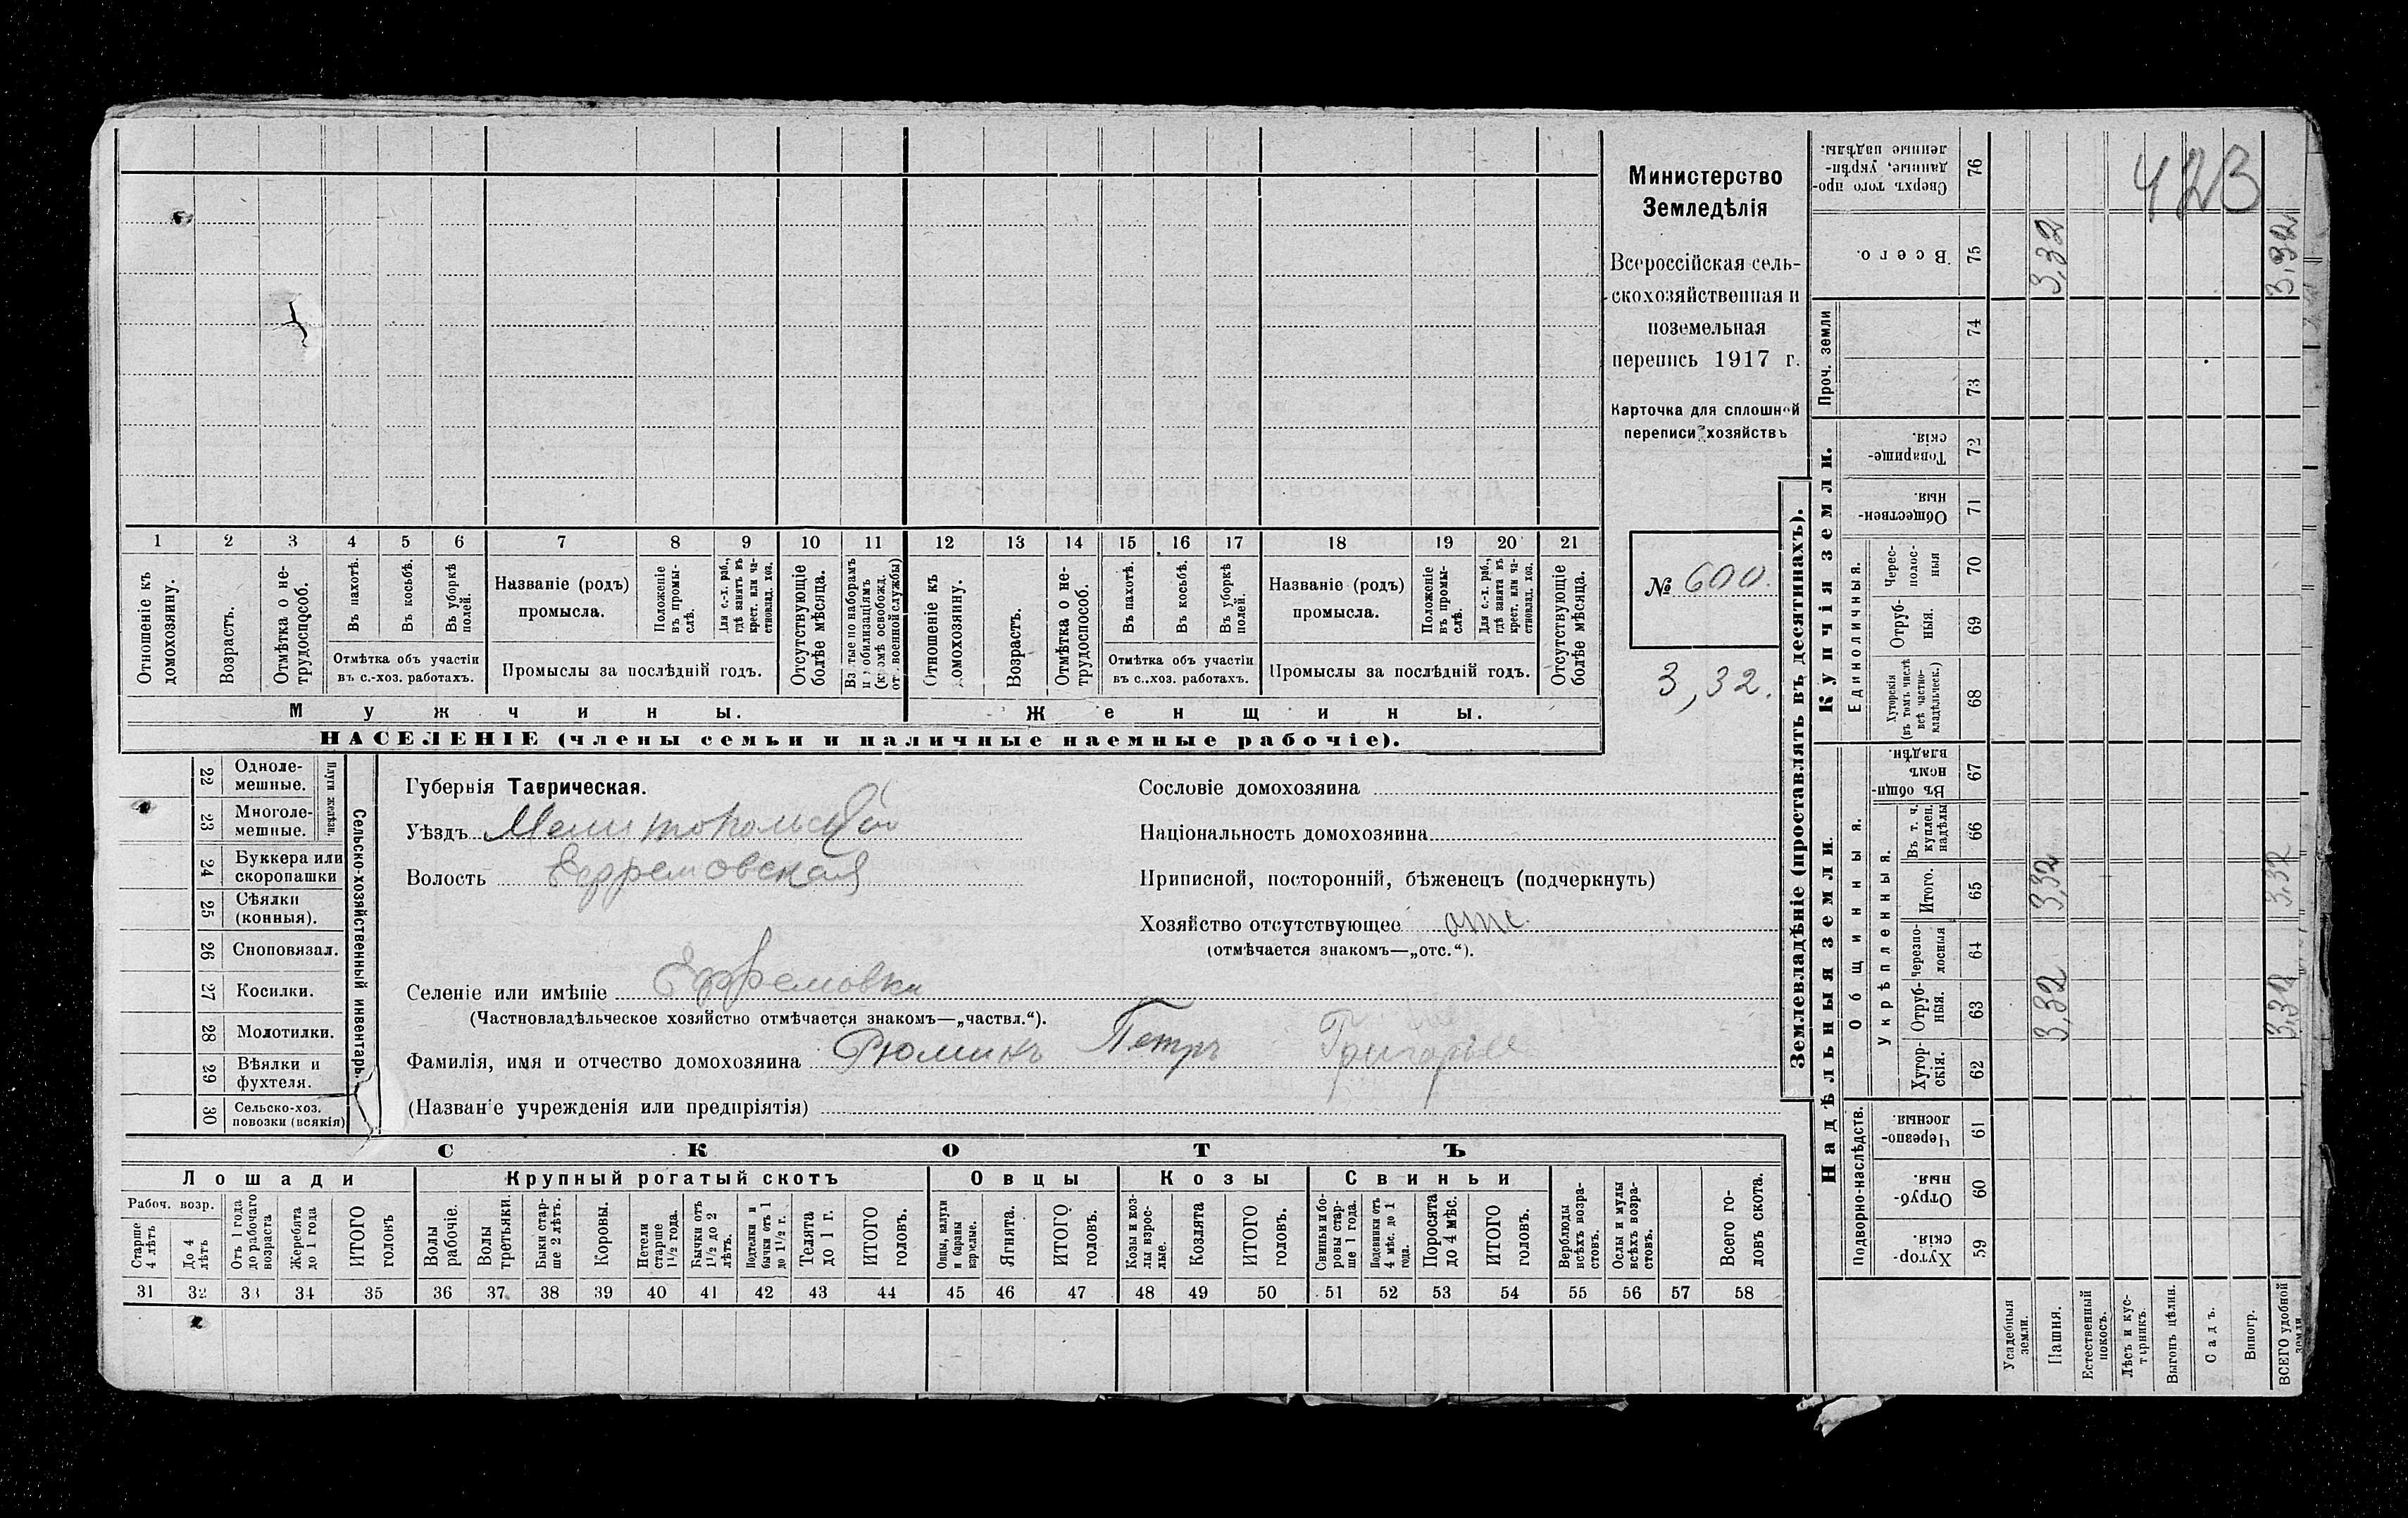 423
Министерство
Земледѣлія
Всероссійская сель-
скохозяйственная и
поземельная
перепись 1917 г.
Карточка для сплошной
переписи хозяйствъ
№ 600.
3,32.
1 2 3 4 5 6 7 8 9 10 11 12 13 14 15 16 17 18 19 20 21
Отношеніе къ домохозяину.
Возрастъ.
Отмѣтка о не-трудоспособ.
Въ пахотѣ.
Въ косьбѣ.
Въ уборкѣ полей.
Отмѣтка объ участіи
въ с.-хоз. работахъ.
Названіе (родъ)
промысла.
Положеніе въ промы-слѣ.
Для с.-х. раб., гдѣ занятъ въ крест. или ча-стновлад. хоз.
Промыслы за послѣдній годъ.
Отсутствующіе болѣе мѣсяца.
Взятые по наборамъ и мобилизаціямъ (кромѣ освобожд. отъ военной службы)
Отношеніе къ домохозяину.
Возрастъ.
Отмѣтка о не-трудоспособ.
Въ пахотѣ.
Въ косьбѣ.
Въ уборкѣ полей.
Отмѣтка объ участіи
въ с.-хоз. работахъ.
Названіе (родъ)
промысла.
Положеніе въ промы-слѣ.
Для с.-х. раб., гдѣ занята въ крест. или ча-стновлад. хоз.
Промыслы за послѣдній годъ.
Отсутствующіе болѣе мѣсяца.
Мужчины.
Женщины.
НАСЕЛЕНІЕ (члены семьи и наличные наемные рабочіе).
Сельско-хозяйственный инвентарь.
Плуги желѣзн.
22 Одноле-мешные.
23 Многоле-мешные.
24 Буккера или скоропашки
25 Сѣялки (конныя).
26 Сноповязал.
27 Косилки.
28 Молотилки.
29 Вѣялки и фухтеля.
30 Сельско-хоз. повозки (всякія)
Губернія Таврическая.
Уѣздъ Мелитопольскій
Волость Ефремовская
Селеніе или имѣніе Ефремовка
(Частновладѣльческое хозяйство отмѣчается знакомъ—„частвл.“).
Фамилія, имя и отчество домохозяина Рюминъ Петръ Григорье
(Названіе учрежденія или предпріятія)
Сословіе домохозяина
Національность домохозяина
Приписной, посторонній, бѣженецъ (подчеркнуть)
Хозяйство отсутствующее отс.
(отмѣчается знакомъ—„отс.“).
СКОТЪ
Лошади
Крупный рогатый скотъ
Овцы
Козы
Свиньи
Рабоч. возр.
Старше 4 лѣтъ
До 4 лѣтъ
Отъ 1 года до рабочаго возраста
Жеребята до 1 года
ИТОГО головъ
Волы рабочіе.
Волы третьяки.
Быки стар-ше 2 лѣтъ.
Коровы.
Нетели старше 1½ года.
Бычки отъ 1½ до 2 лѣтъ.
Подтелки и бычки отъ 1 до 1½ г.
Телята до 1 г.
ИТОГО головъ.
Овцы, валухи и бараны взрослые.
Ягнята.
ИТОГО головъ.
Козы и коз-лы взрос-лые.
Козлята
ИТОГО головъ.
Свиньи и бо-ровы стар-ше 1 года.
Подсвинки отъ 4 мѣс. до 1 года.
Поросята до 4 мѣс.
ИТОГО головъ.
Верблюды всѣхъ возра-стовъ.
Ослы и мулы всѣхъ возра-стовъ.
Всего го-ловъ скота.
31 32 33 34 35 36 37 38 39 40 41 42 43 44 45 46 47 48 49 50 51 52 53 54 55 56 57 58
Землевладѣніе (проставлять въ десятинахъ).
Надѣльныя земли.
Купчія земли.
Проч. земли
Подворно-наслѣдств.
Общинныя.
Укрѣпленныя.
Единоличныя.
Сверхъ того про-данные, укрѣп-ленные надѣлы. 76
Всего. 75 3,32 3,32
74
73
Товарище-скія. 72
Обществен-ныя. 71
Черес-полос-ныя 70
Отруб-ныя. 69
Хуторскія (въ томъ числѣ всѣ частно-владѣльческ.) 68
Въ общи-номъ владѣн. 67
Въ т. ч. куплен. надѣлы 66
Итого. 65 3,32 3,32
Черезпо-лосныя 64
Отруб-ныя. 63 3,32 3,32
Хутор-скія. 62
Черезпо-лосныя. 61
Отруб-ныя. 60
Хутор-скія. 59
Усадебныя земли.
Пашня.
Естественный покосъ.
Лѣсъ и кус-тарникъ.
Выгонъ цѣлин.
Садъ.
Виногр.
ВСЕГО удобной земли